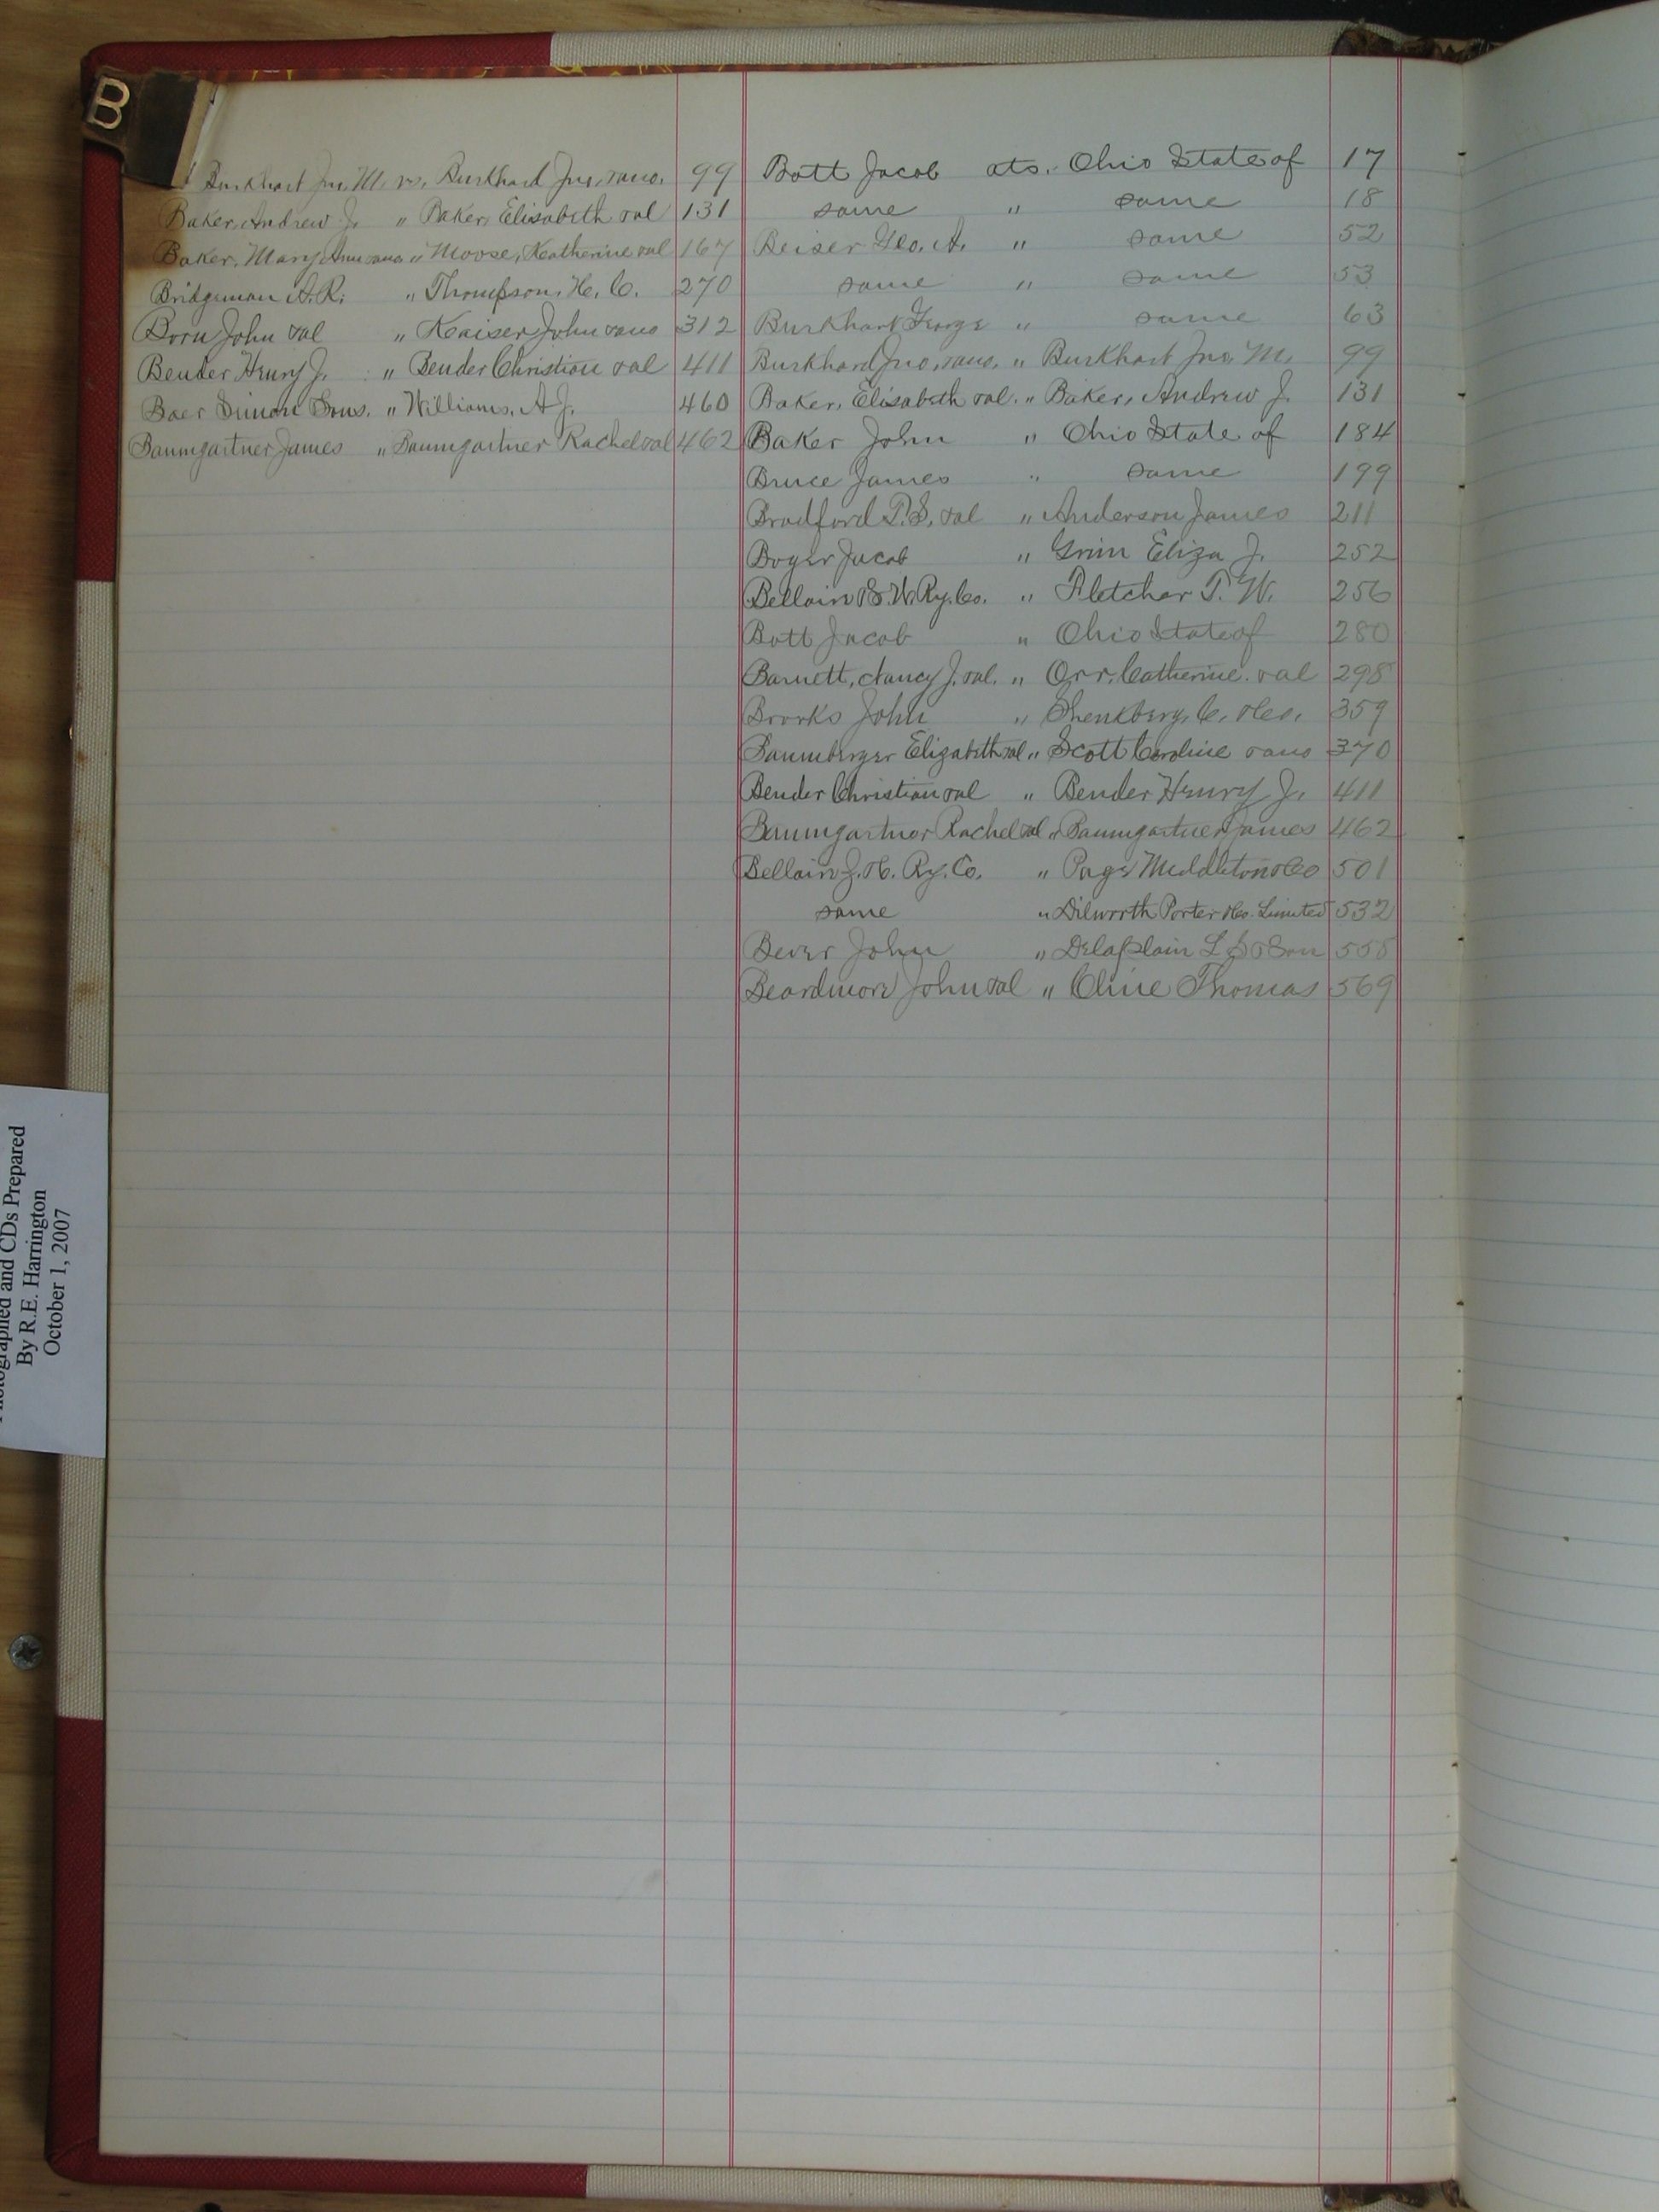 B
Burkhart Jno. M. vs. Burkhard Jno, rano. 99
Baker, Andrew J. " Baker, Elisabeth val 131
Baker, Mary Ann " Moose, Katherine val 167
Bridgeman A.R. " Thompson, H. C. 270
Born John val " Kaiser John 312
Bender Henry J. " Bender Christian val 411
Baer Simon Sons. " Williams, A J. 460
Baumgartner James " Baumgartner Rachel val 462
Bott Jacob ats. Ohio State of 17
same " same 18
Beiser Geo. A. " same 52
same " same 53
Burkhart George " same 63
Burkhard Jno, rano. " Burkhart Jno. M. 99
Baker, Elisabeth val. " Baker, Andrew J. 131
Baker John " Ohio State of 184
Bruce James " same 199
Bradford P.S. val " Anderson James 211
Boger Jacob " Grim Eliza J. 252
Bellair & S.W. Ry. Co. " Fletcher T. W. 256
Bott Jacob " Ohio State of 280
Barnett, Nancy J. val. " Orr, Catherine. val 298
Brooks John " Shenkberg, C. &Co. 359
Baumberger Elizabeth val " Scott Caroline 370
Bender Christian val " Bender Henry J. 411
Baumgartner Rachel val " Baumgartner James 462
Bellair Z. & C. Ry. Co. " Page Middleton & Co 501
same " Dilworth Porter &Co. Limited 532
Bever John " Delaplain L S & Son 555
Beardmore John val " Cline Thomas 569
Photographed and CDs Prepared
By R.E. Harrington
October 1, 2007